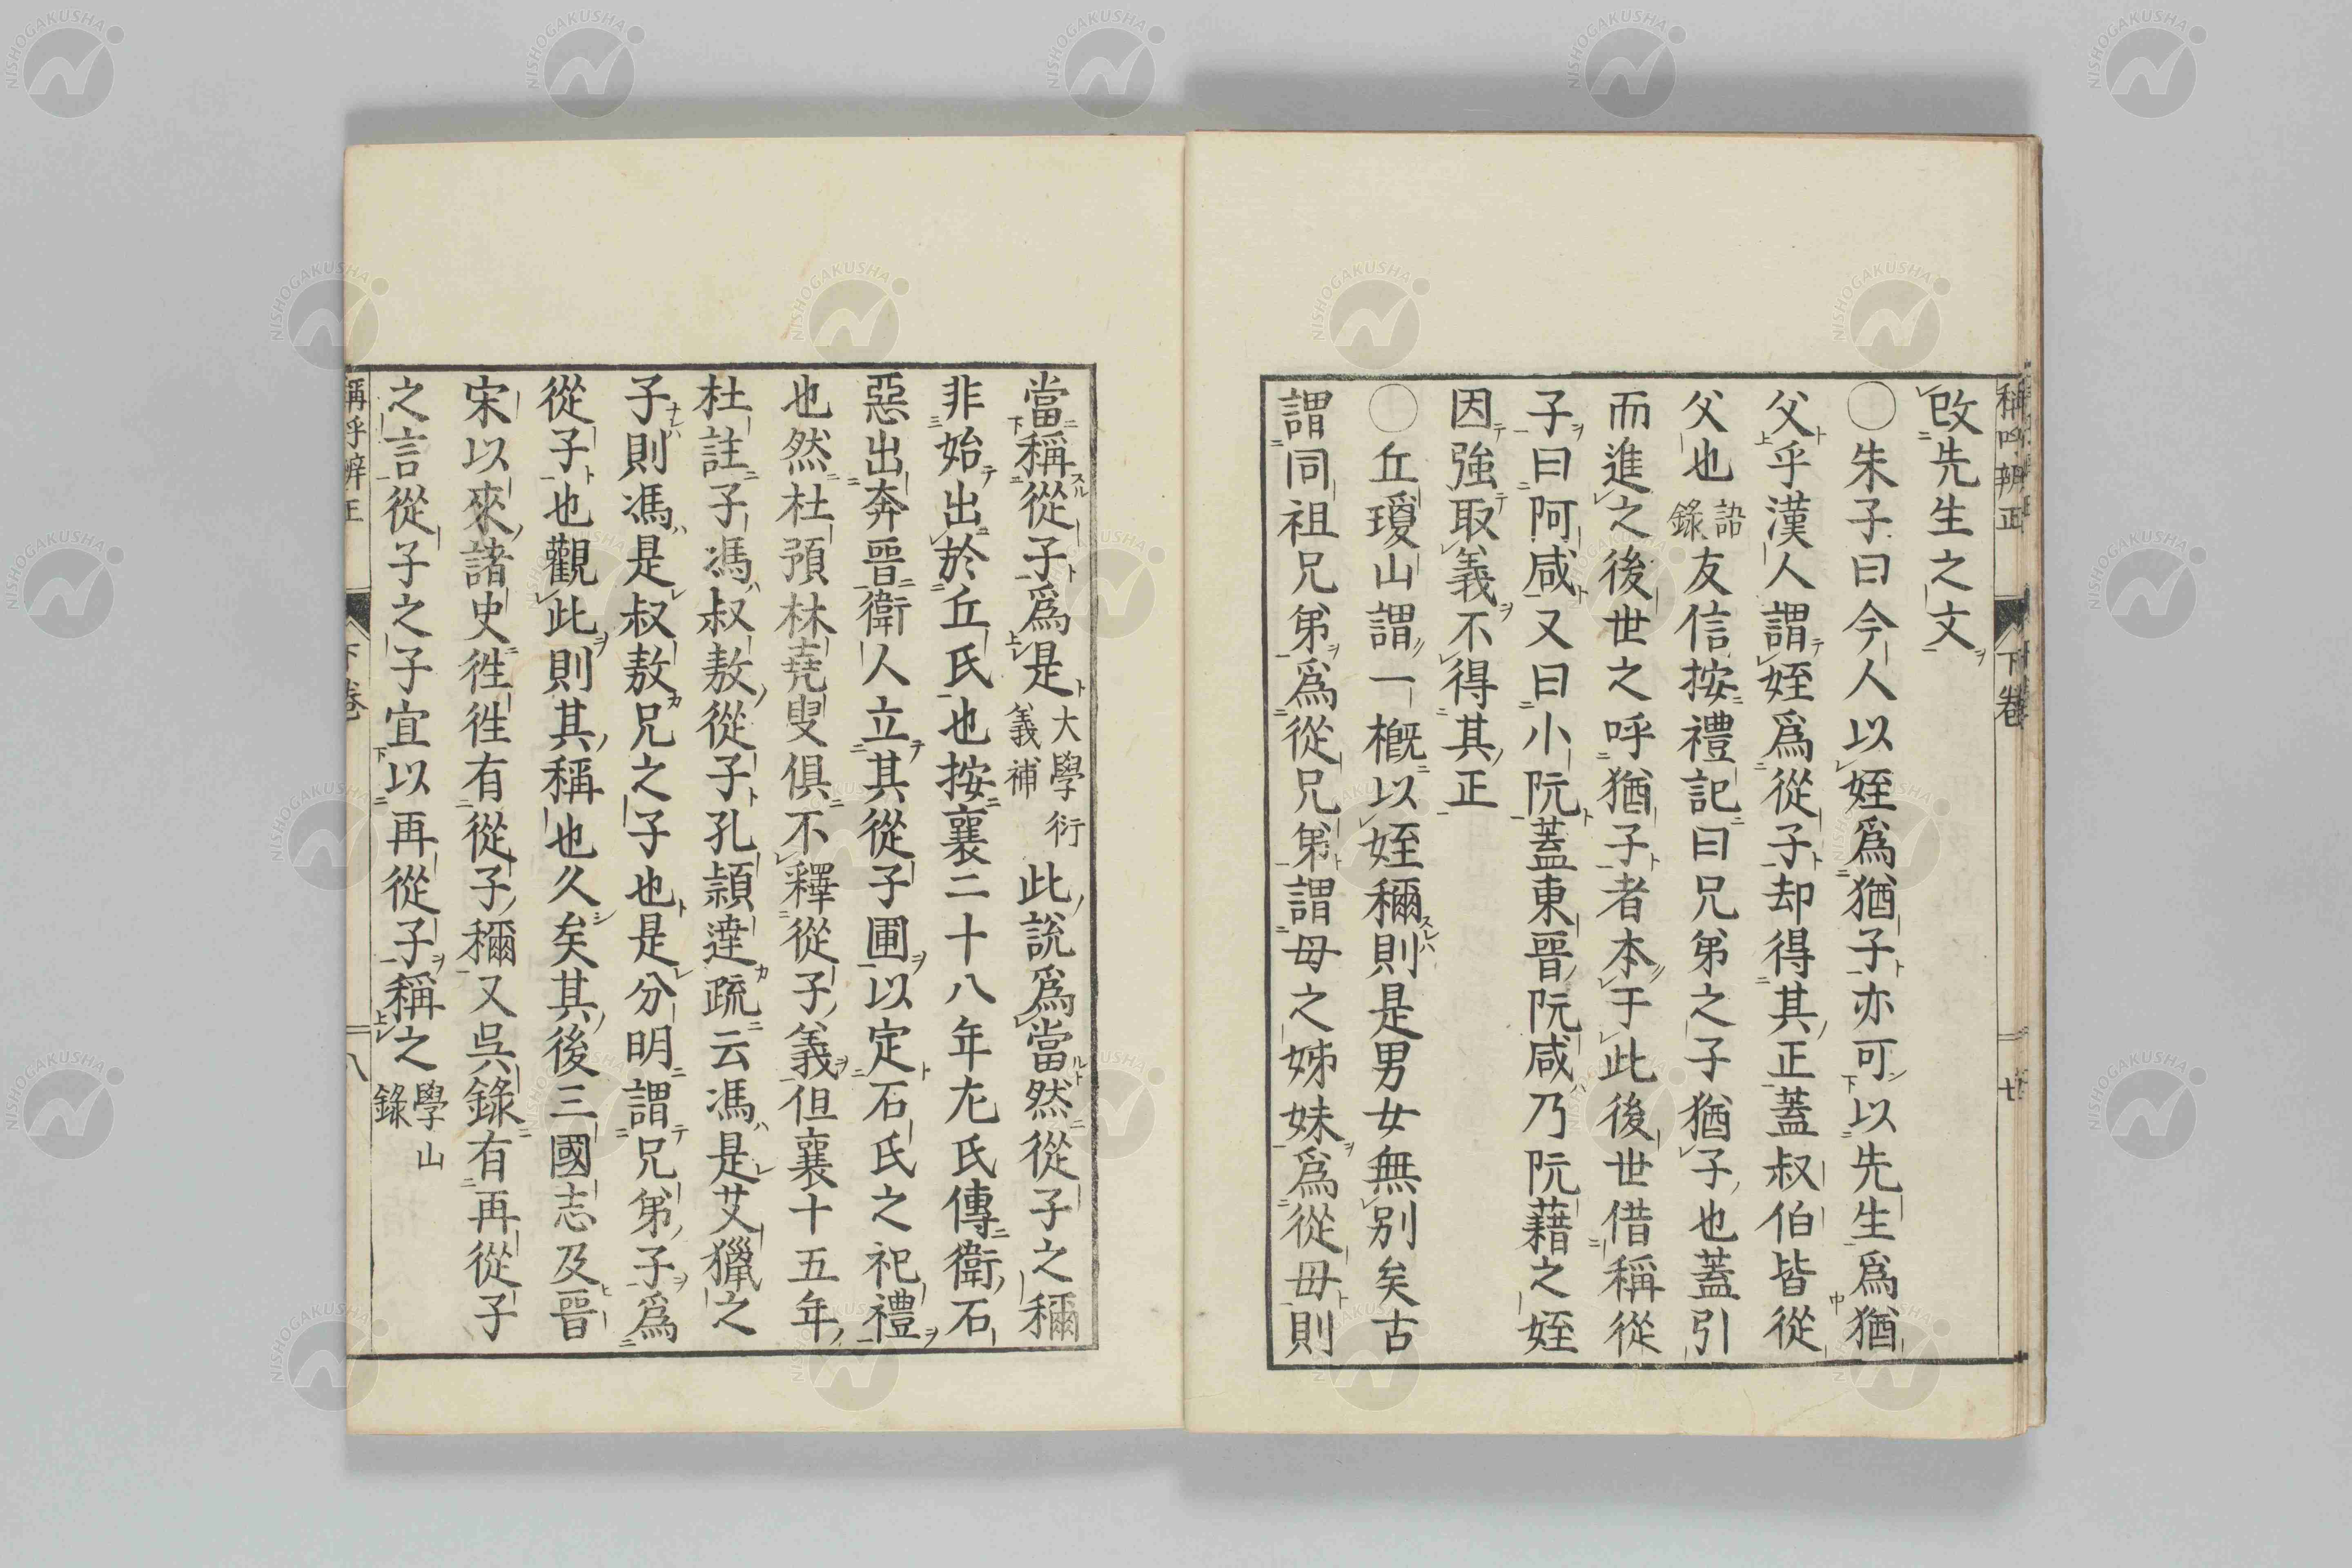 攺先生之文
〇朱子曰今人以姪爲猶子亦可以先生爲猶
父乎漢人謂姪爲從子却得其正蓋叔伯皆從
父也語錄友信按禮記曰兄弟之子猶子也蓋引
而進之後世之呼猶子者本于此後世借稱從
子曰阿咸又曰小阮蓋東晉阮咸乃阮藉之姪
因強取義不得其正
〇丘瓊山謂一槪以姪稱則是男女無別矣古
謂同祖兄弟爲從兄弟謂母之姊妹爲從母則
稱呼辨正 下卷
當稱從子爲是大學衍義補此說爲當然從子之稱
非始出於丘氏也按襄二十八年左氏傳衛石
惡出奔晉衛人立其從子圃以定石氏之祀禮
也然杜預林堯叟俱不釋從子義但襄十五年
杜註子馮叔敖從子孔頴達疏云馮是艾獵之
子則馮是叔敖兄之子也是分明謂兄弟子爲
從子也觀此則其稱也久矣其後三國志及晉
宋以來諸史徃徃有從子稱又吳錄有再從子
之言從子之子宜以再從子稱之學山錄
稱呼辨正 下卷 八
NISHOGAKUSHA